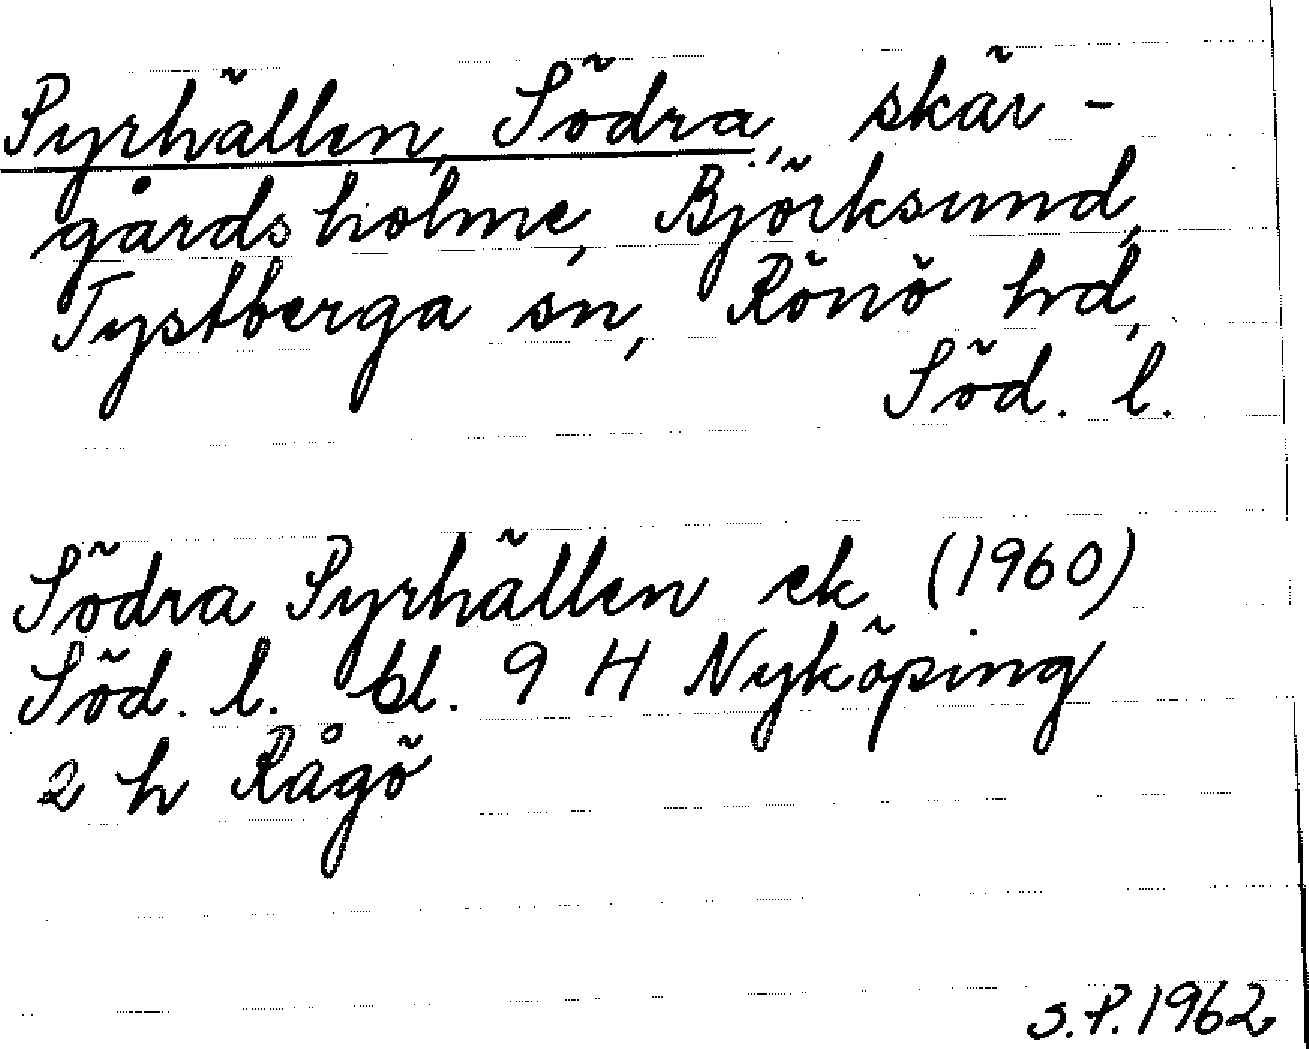 Pyrhällen, Södra, skär-
gårdsholme, Björksund,
Tystberga sn, Rönö hd,
Söd. l.
Södra Pyrhällen ek. (1960)
Söd. l. bl. 9 H Nyköping
2 h Rågö
S.P. 1962